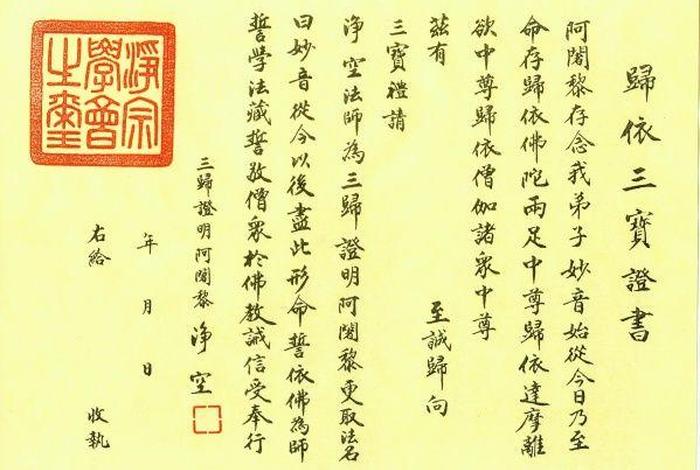 歸依三寶證書
阿闍黎存念我弟子妙音始從今日乃至
命存歸依佛陀兩足中尊歸依達摩離
欲中尊歸依僧伽諸眾中尊
茲有
至誠歸向
三寶禮請
淨空法師為三歸證明阿闍黎更取法名
曰妙音從今以後盡此形命誓依佛為師
誓學法藏誓敬僧眾於佛教誠信受奉行
三歸證明阿闍黎 淨空
年 月 日
右給 收執
淨宗
學會
之璽